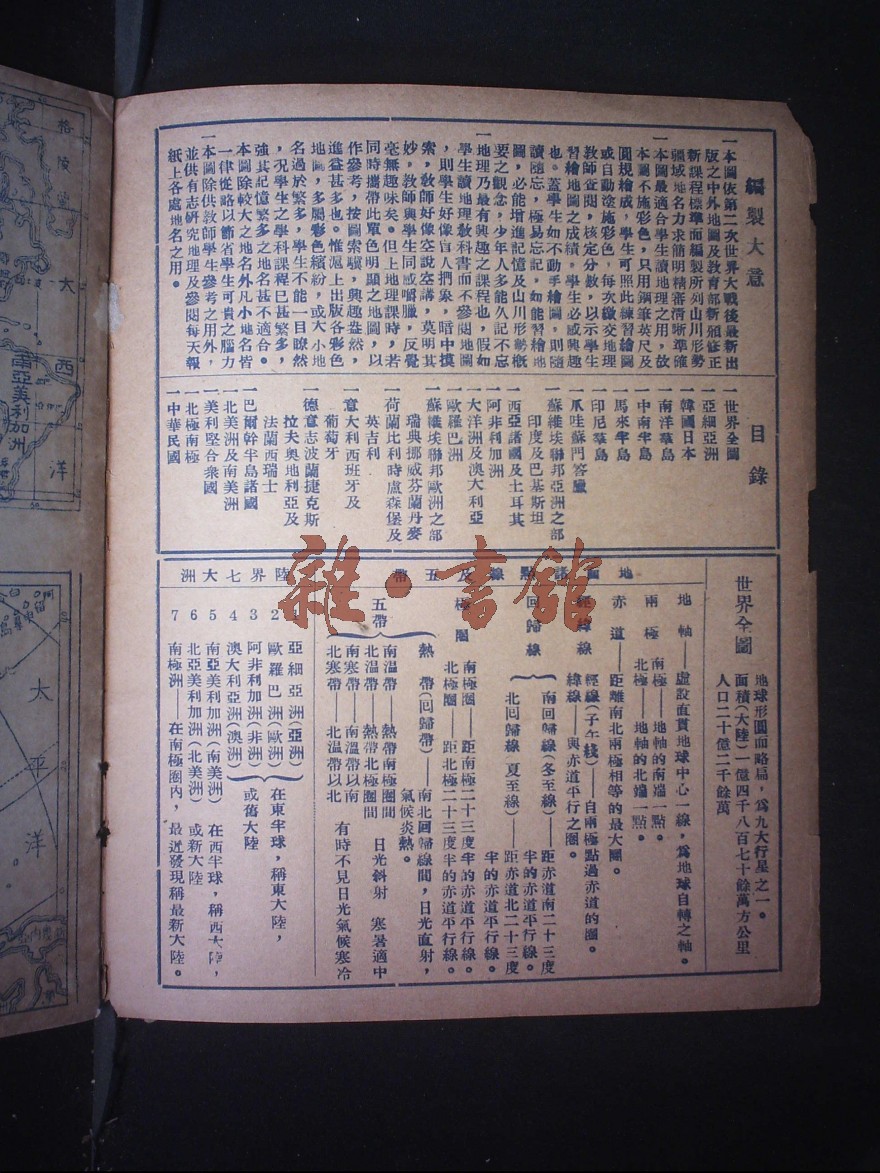 編製大意
一本圖依第二次世界大戰後最新出
版之中外地圖及教育部新頒修正
新課程標準而編製所列山川形勢
疆域地名力求簡明精審清晰準確
一本圖最適合學生讀地理之用，故
本圖不施彩色，只用鋼筆英尺及
圓規繪成，學生可照此練習繪圖
或自動塗施彩色，每次繳交地理
教師查閱，核定分數，以示學生
習繪地圖之成績，學生必感興趣
也。蓋學生如不動手繪圖，則隨
讀隨忘，極易忘記，如能習繪地
圖，必能增進記憶及山川形勢概
要之觀念，少年人多能久記不忘
一地理乃最有興趣之課程也，假如
學生讀地理教科書而不參閱地圖
，則學生好像盲人捫象，暗中摸
索，教師好像空說空講，莫明其
妙，教師與學生同感嚼臘，反覺
毫無趣味矣。但上地理課時，若
同時攜帶此單色明顯之地圖，以
作參考，按圖索驥，興趣盎然，
進益甚多也。惟滬上出版各彩色
地圖，多屬彩色繽紛，或大小地
名過於繁多，學生不能一目瞭然
，况學生之學科課程已甚繁多，
強其記憶繁多之地名甚不適合。
本圖除較大之地名外凡小地名皆
一律從略以節省學生可貴之腦力
一本圖除供教師學生參考之用外，
並供有志研究地理及參閱每天報
紙上各處地名之用。
目錄
一世界全圖
一亞細亞洲
一韓國日本
一南洋羣島
一中南半島
一馬來半島
一印尼羣島
一爪哇蘇門答臘
一蘇維埃聯邦亞洲之部
印度及巴基斯坦
一西亞諸國及土耳其
一阿非利加洲
一大洋洲及澳大利亞
一歐羅巴洲
一蘇維埃聯邦歐洲之部
瑞典挪威芬蘭丹麥
一荷蘭比利時盧森堡及
英吉利
一意大利西班牙及
葡萄牙
一德意志波蘭捷克斯
拉夫奧地利亞及
法蘭西瑞士
一巴爾幹半島諸國
一北美洲及南美洲
一美利堅合衆國
一北極南極
一中華民國
世界全圖
地球形圓而略扁，爲九大行星之一。
面積(大陸)一億四千八百七十餘萬方公里
人口二十億二千餘萬
地面諸點線及五帶
地軸——虛設直貫地球中心一線，爲地球自轉之軸。
兩極
南極——地軸的南端一點。
北極——地軸的北端一點。
赤道——距離南北兩極相等的最大圈。
經緯線
經線(子午綫)——自兩極點過赤道的圈。
緯線——與赤道平行之圈。
回歸線
南回歸線(冬至線)——距赤道南二十三度
半的赤道平行線。
北回歸線(夏至線)——距赤道北二十三度
半的赤道平行線。
極圈
南極圈——距南極二十三度半的赤道平行線。
北極圈——距北極二十三度半的赤道平行線。
五帶
熱帶(回歸帶)——南北回歸線間，日光直射，
氣候炎熱。
南溫帶——熱帶南極圈間
北溫帶——熱帶北極圈間
日光斜射 寒暑適中
南寒帶——南溫帶以南
北寒帶——北溫帶以北
有時不見日光氣候寒冷
陸界七大洲
亞細亞洲(亞洲)
2 歐羅巴洲(歐洲)
3 阿非利加洲(非洲)
4 澳大利亞洲(澳洲)
在東半球，稱東大陸，
或舊大陸
5 南亞美利加洲(南美洲)
6 北亞美利加洲(北美洲)
在西半球，稱西大陸，
或新大陸
7 南極洲——在南極圈內，最近發現稱最新大陸。
雜·書館
格陵
大
西
洋
亞美利加洲
太
平
洋